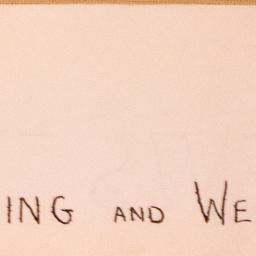 ING AND WE